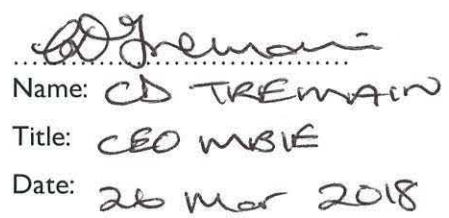 CD Tremain
Name: CD TREMAIN
Title: CEO MBIE
Date: 26 Mar 2018